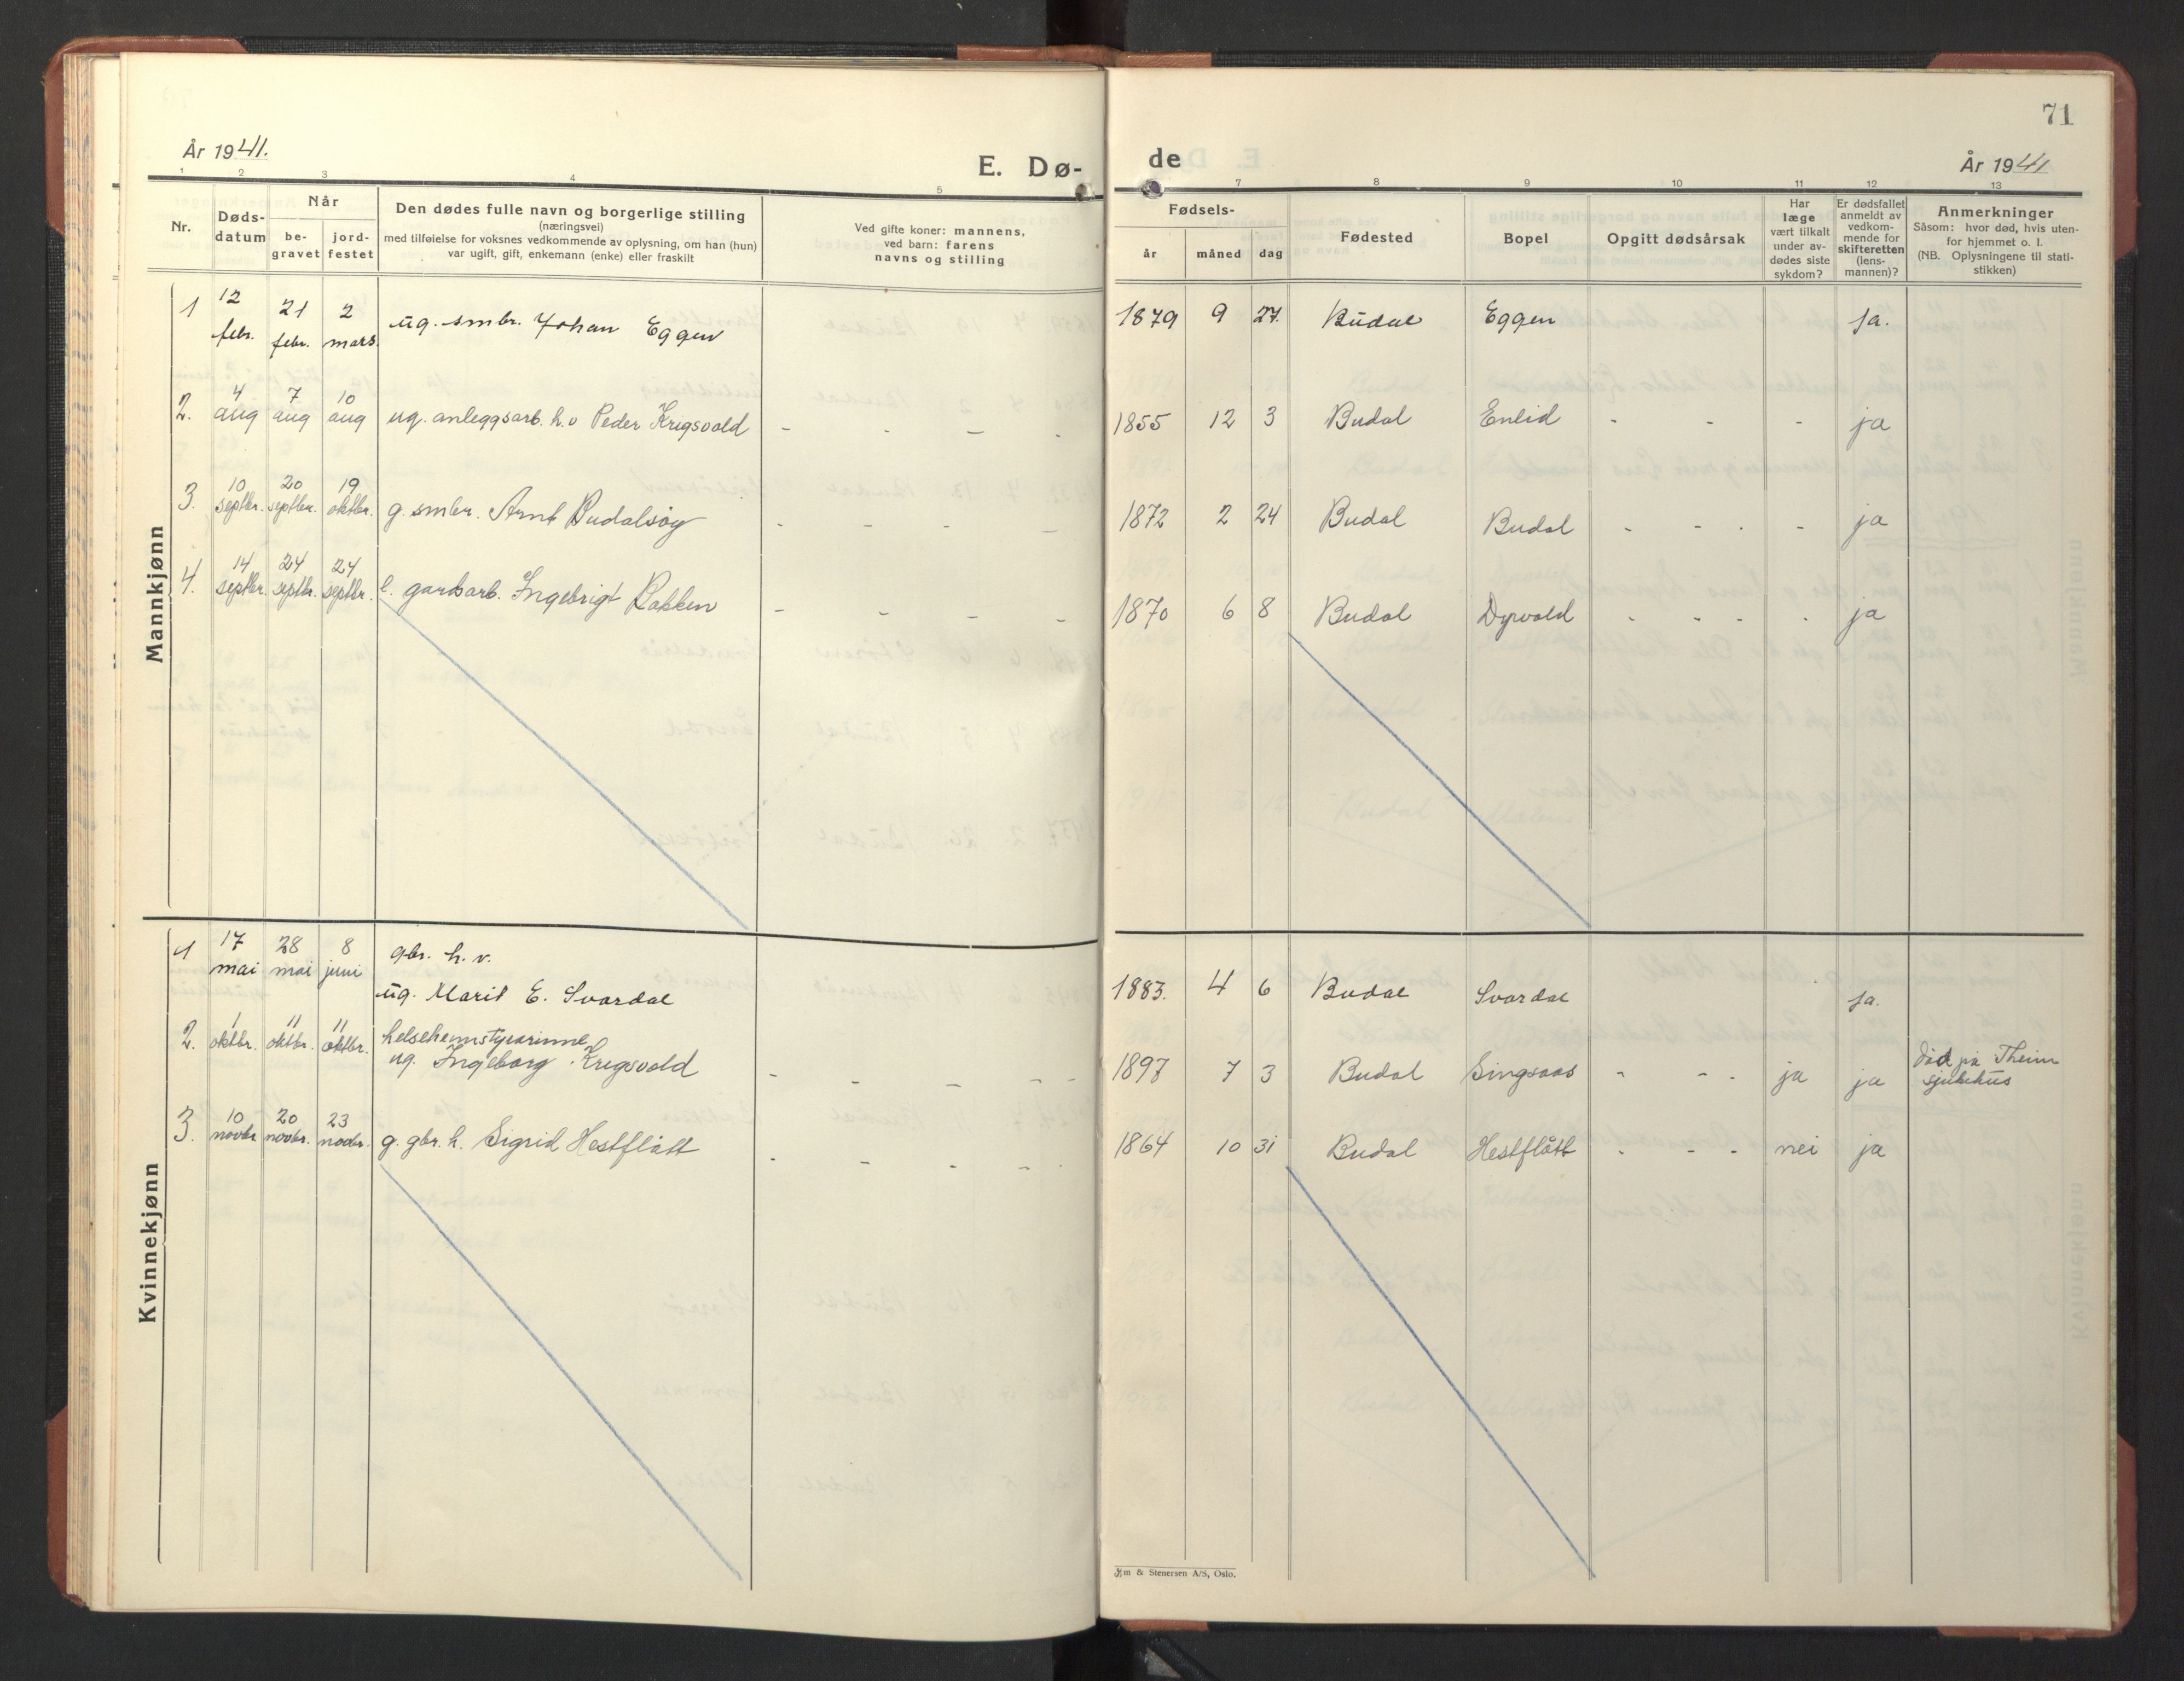 71
År 1941.
E. Dø-
de
År 1941
1 2 3 4 5 7 8 9 10 11 12 13
Nr.
Døds-
datum
Når
be-
gravet
jord-
festet
Den dødes fulle navn og borgerlige stilling
(næringsvei)
med tilføielse for voksnes vedkommende av oplysning, om han (hun)
var ugift, gift, enkemann (enke) eller fraskilt
Ved gifte koner: mannens,
ved barn: farens
navns og stilling
Fødsels-
år måned dag
Fødested
Bopel
Opgitt dødsårsak
Har
læge
vært tilkalt
under av-
dødes siste
sykdom?
Er dødsfallet
anmeldt av
vedkom-
mende for
skifteretten
(lens-
mannen)?
Anmerkninger
Såsom: hvor død, hvis uten-
for hjemmet o. l.
(NB. Oplysningene til stati-
stikken)
Mankjønn
1 12 febr. 21 febr. 2 mars ug. smbr. Johan Eggen 1879 9 27. Budal Eggen Ja.
2. 4 aug 7 aug 10 aug ug. anleggsarb. h.v Peder Krigsvold - - - - 1855 12 3 Budal Enlid - - - ja
3. 10 septbr. 20 septbr. 19 oktbr. g. smbr. Arnt Budalsøy - - - - 1872 2 24 Budal Budal - - - - ja
4. 14 septbr. 24 septbr. 24 septbr. e. gardsarb. Ingebrigt Bakken - - - - 1870 6 8 Budal Dyrvold - - - - ja
Kvinnekjønn
1 17 mai 28 mai 8 juni gbr. h. v.
ug. Marit E. Svardal 1883. 4 6 Budal Svardal Ja.
2. 1 oktbr. 11 oktbr. 11 oktbr. helseheimstyrarinne
ug. Ingeborg Krigsvold - - - - 1897 7 3 Budal Singsaas - - - ja ja Død på Theim
sjukehus
3. 10 novbr 20 novbr. 23 novbr. g. gbr. h. Sigrid Hestflått - - - - 1864 10 31 Budal Hestflått - - - nei ja
& Stenersen A/S, Oslo.